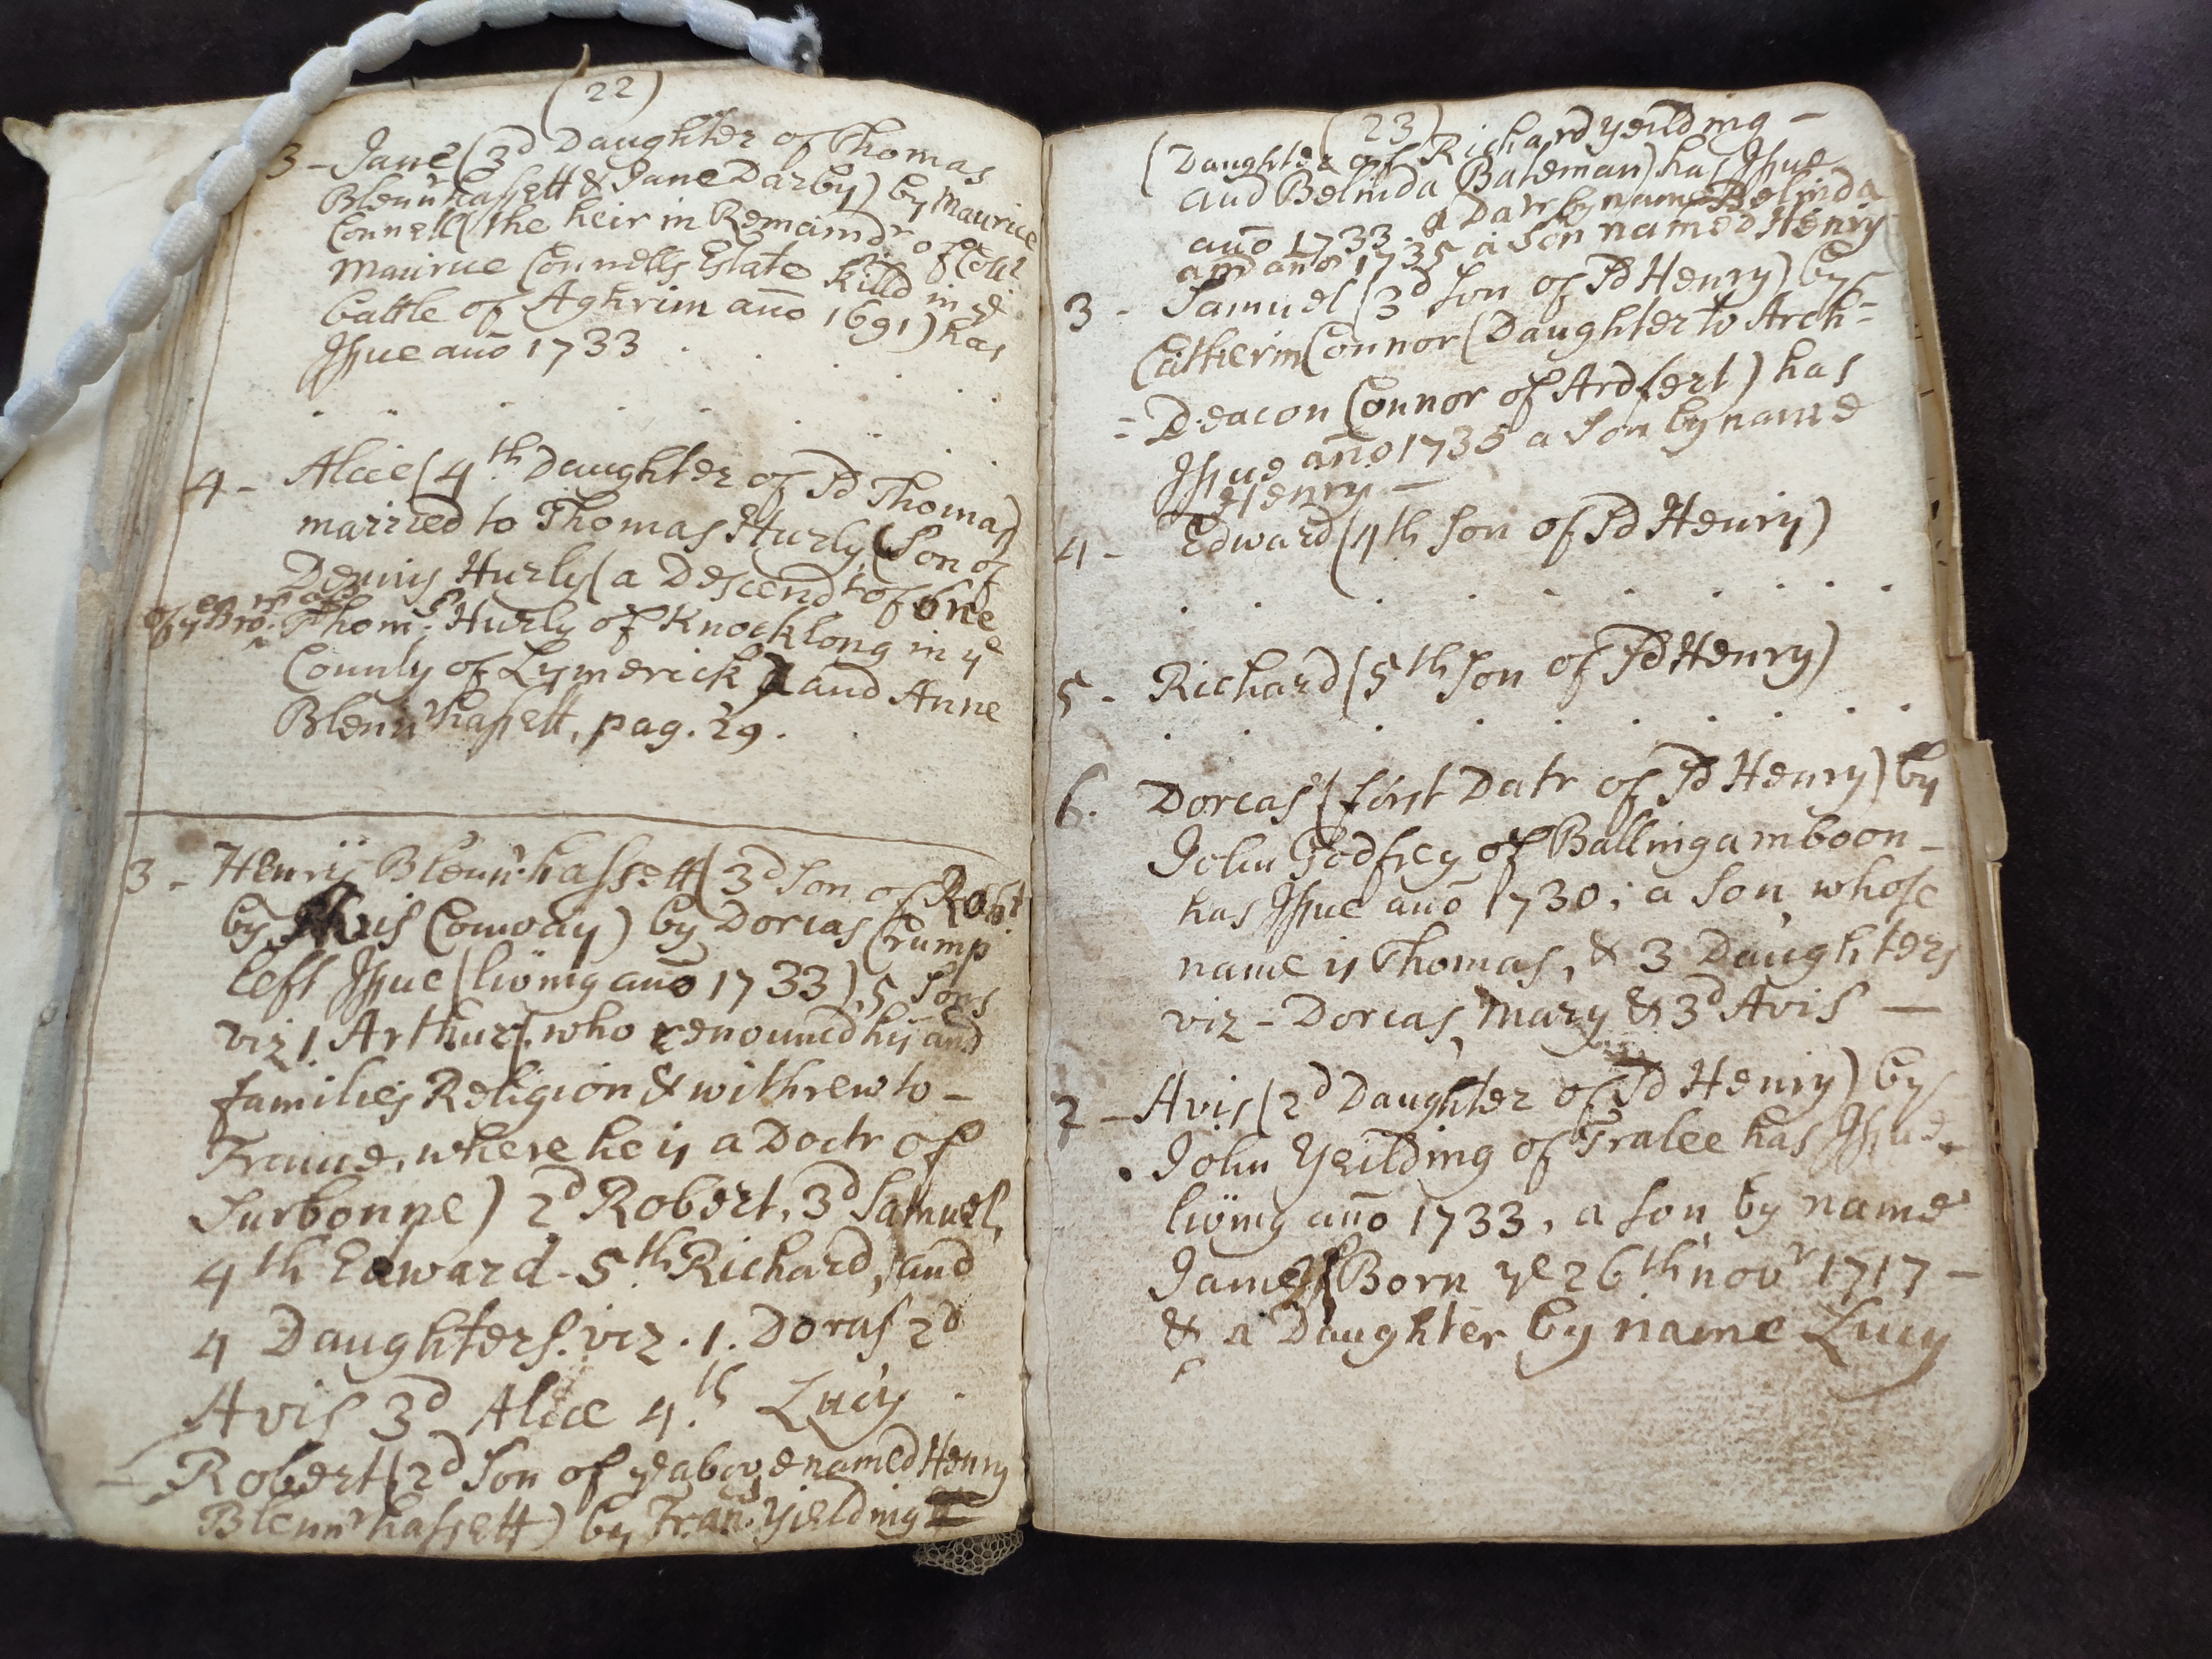 (22)
3 - Jane (3d Daughter of Thomas
Blennrhassett & Jane Darby) by Maurice
Connell (the heir in Remaindr of Coll:
Maurice Connells Estate killd in ye
battle of Aghrim ano 1691) has
Issue ano 1733
4 - Alice (4th Daughter of Sd Thomas)
married to Thomas Hurly (Son of
Dennis Hurly (a Descendt of one
of ye Bro:rs of Thoms Hurly of Knocklong in ye
County of Lymerick) and Anne
Blennrhassett, pag. 29.
3 - Henry Blennrhassett (3d Son of Robt
by Avis Conway) by Dorcas Crump
left Issue (living ano 1733) 5 Sons
viz 1 Arthur (who renouncd his and
families Religion & withrew to -
France, where he is a Doctr of
Surbonne) 2d Robert, 3d Samuel,
4th Edward - 5th Richard, and
4 Daughters. viz. 1. Dorcas 2d
Avis 3d Alice 4th Lucy
- Robert (2d Son of ye above named Henry
Blennrhassett) by Frans Yielding
(23)
(Daughter of Richard Yeilding -
and Belinda Bateman) has Issue
ano 1733. a Datr by name Belinda
and ano 1735 a Son named Henry
3 - Samuel (3d Son of Sd Henry) by
Catherin Connor (Daughter to Arch=
=Deacon Connor of Ardfert) has
Issue ano 1735 a Son by name
Henry -
4 - Edward (4th Son of Sd Henry)
5 - Richard (5th Son of Sd Henry)
6. Dorcas (first Datr of Sd Henry) by
John Godfrey of Ballingamboon -
has Issue ano 1730; a Son whose
name is Thomas, & 3 Daughters
viz - Dorcas, Mary & 3d Avis -
2 - Avis (2d Daughter of Sd Henry) by
John Yeilding of Tralee has Issue
living ano 1733, a Son by name
James (Born ye 26th novr 1717 -
& a Daughter by name Lucy